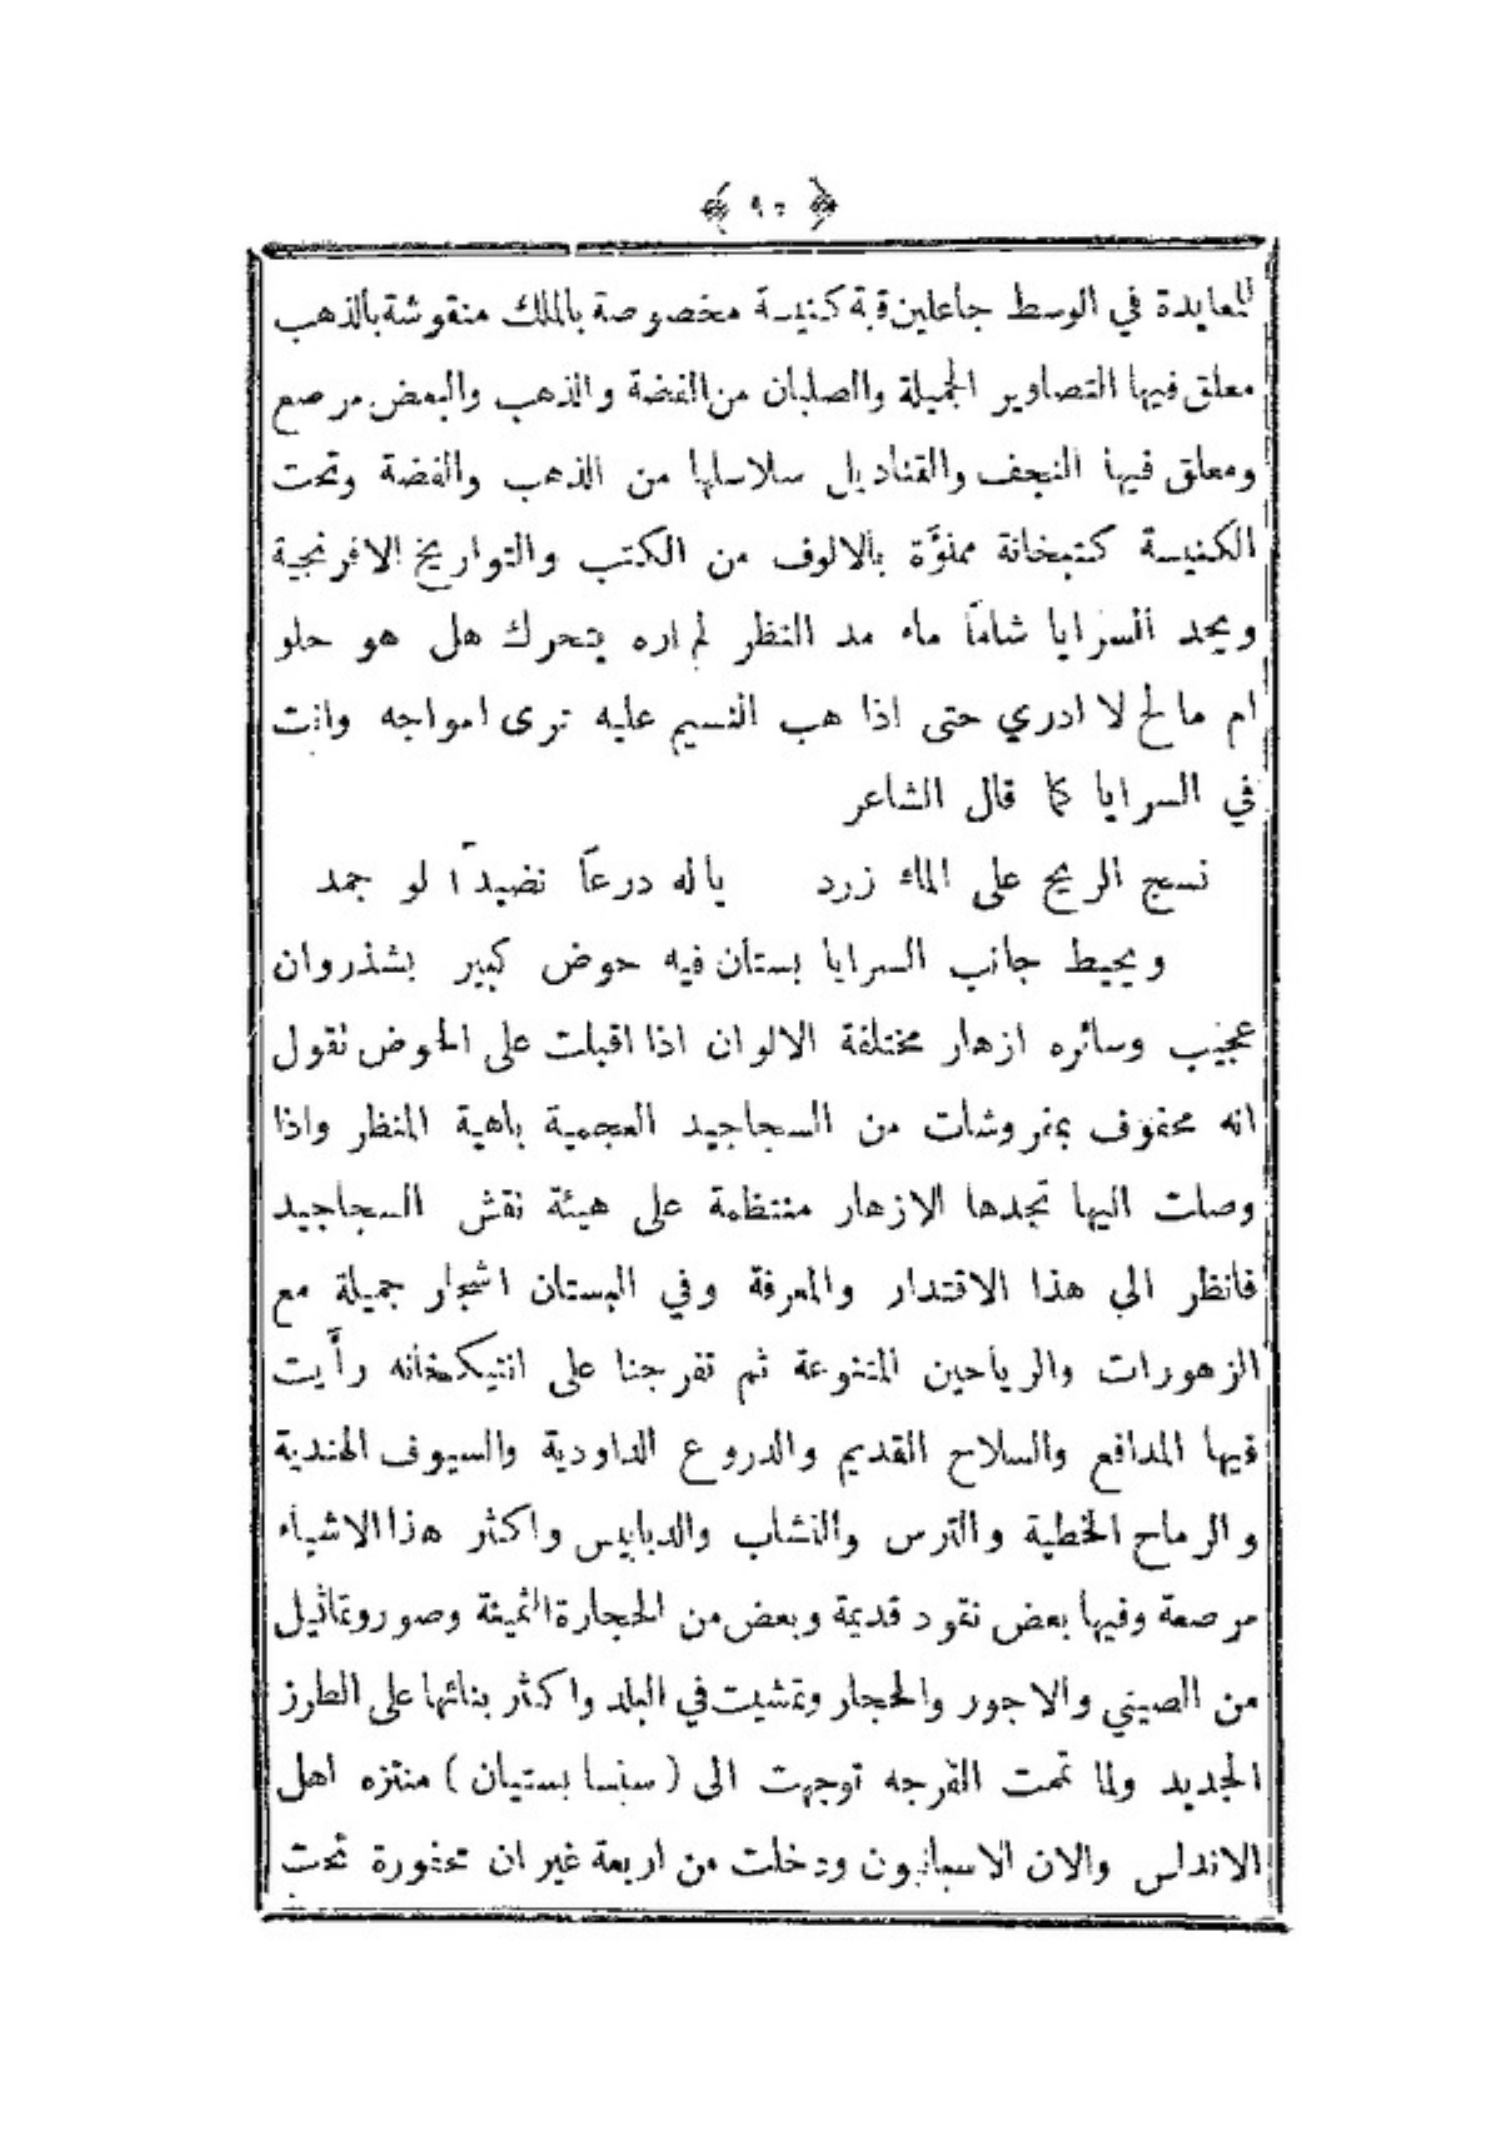 ﴿ ٩٠ ﴾
للعايدة في الوسط جاعلين قبة كنيسة مخصوصة بالملك منقوشة بالذهب
معلق فيها التصاوير الجميلة والصلبان من الفضة والذهب والبعض مرصع
ومعلق فيها النجف والقناديل سلاسلها من الذهب والفضة وتحت
الكنيسة كتبخانة مملوَّة بالالوف من الكتب والتواريخ الافرنجية
ويحد السرايا شاماً ماء مد النظر لم اره يتحرك هل هو حلو
ام مالح لا ادري حتى اذا هب النسيم عليه ترى امواجه وانت
في السرايا كما قال الشاعر
نسج الريح على الماء زرد ياله درعاً نضيداً لو جمد
ويحيط جانب السرايا بستان فيه حوض كبير بشذروان
عجيب وسائره ازهار مختلفة الالوان اذا اقبلت على الحوض تقول
انه محفوف بمفروشات من السجاجيد العجمية باهية المنظر واذا
وصلت اليها تجدها الازهار منتظمة على هيئة نقش السجاجيد
فانظر الي هذا الاقتدار والمعرفة وفي البستان اشجار جميلة مع
الزهورات والرياحين المتنوعة ثم تفرجنا على انتيكخانه رأَيت
فيها المدافع والسلاح القديم والدروع الداودية والسيوف الهندية
والرماح الخطية والترس والنشاب والدبابيس واكثر هذا الاشياء
مرصعة وفيها بعض نقود قديمة وبعض من الحجارة الثمينة وصور وتماثيل
من الصيني والاجور والحجار وتمشيت في البلد واكثر بنائها على الطرز
الجديد ولما تمت الفرجه توجهت الى (سنسا بستيان) منتزه اهل
الاندلس والان الاسبانيون ودخلت من اربعة غيران محفورة تحت